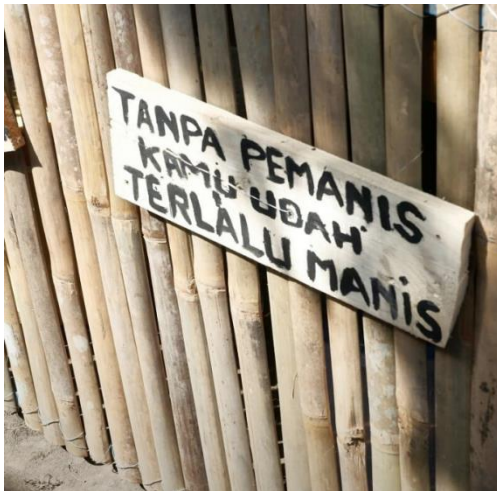 TANPA PEMANIS
KAMU UDAH
TERLALU MANiS